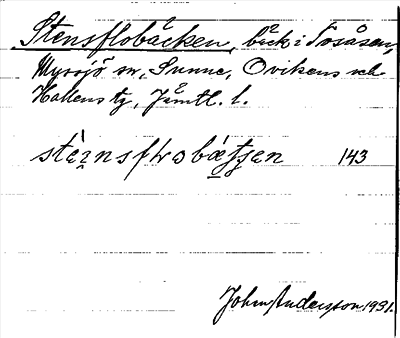 Stensflobäcken, bäck i Svsåsen,
Myssjö sn, Sunne, Ovikens och
Hallens tg, Jämtl. l.
143
John Andersson 1931.